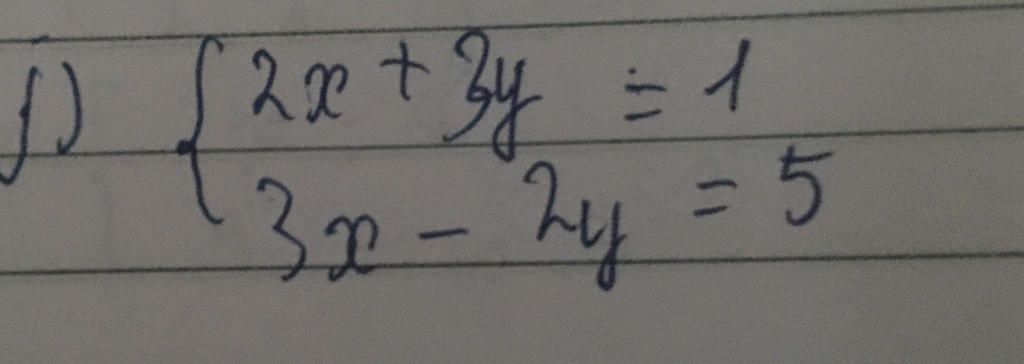 j) { 2x + 3y = 1
3x - 2y = 5